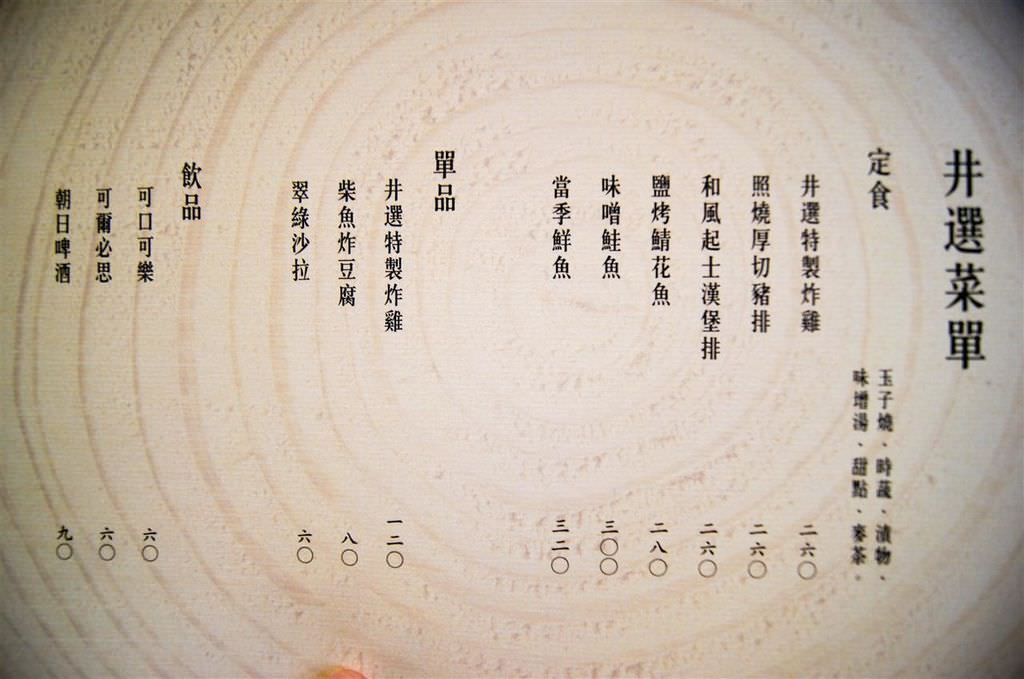 井選菜單
定食
玉子燒、時蔬、漬物、
味增湯、甜點、麥茶。
井選特製炸雞 二六〇
照燒厚切豬排 二六〇
和風起士漢堡排 二六〇
鹽烤鯖花魚 二八〇
味噌鮭魚 三〇〇
當季鮮魚 三二〇
單品
井選特製炸雞 一二〇
柴魚炸豆腐 八〇
翠綠沙拉 六〇
飲品
可口可樂 六〇
可爾必思 六〇
朝日啤酒 九〇